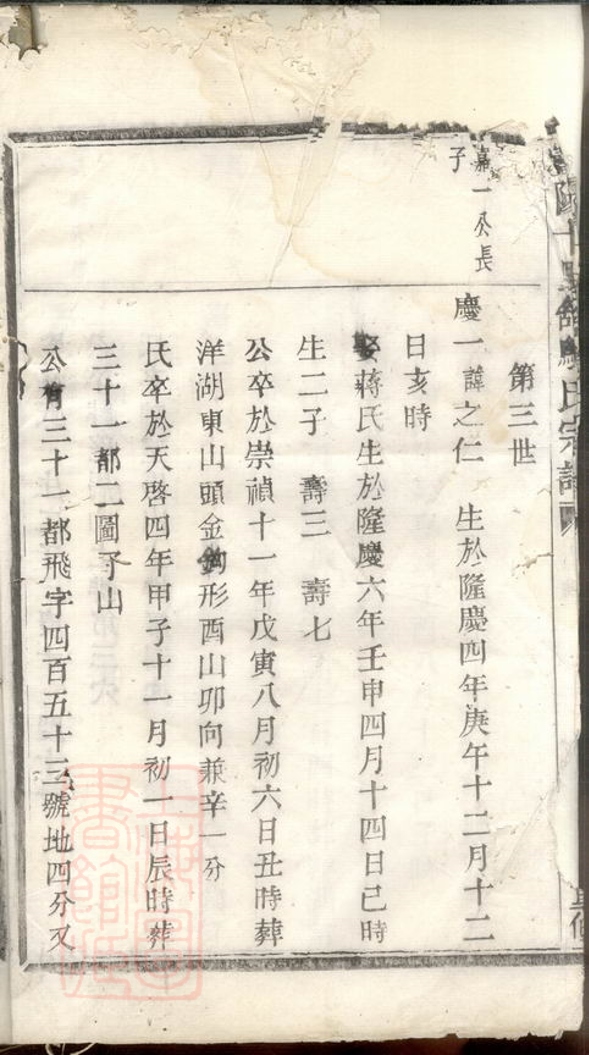 氏宗譜
第三世
嘉一公長
子
慶一諱之仁 生於隆慶四年庚午十二月十二
日亥時
娶蔣氏生於隆慶六年壬申四月十四日巳時
生二子 壽三 壽七
公卒於崇禎十一年戊寅八月初六日丑時葬
洋湖東山頭金鉤形酉山卯向兼辛一分
氏卒於天啓四年甲子十一月初一日辰時葬
三十一都二圖予山
公有三十一都飛字四百五十三號地四分又